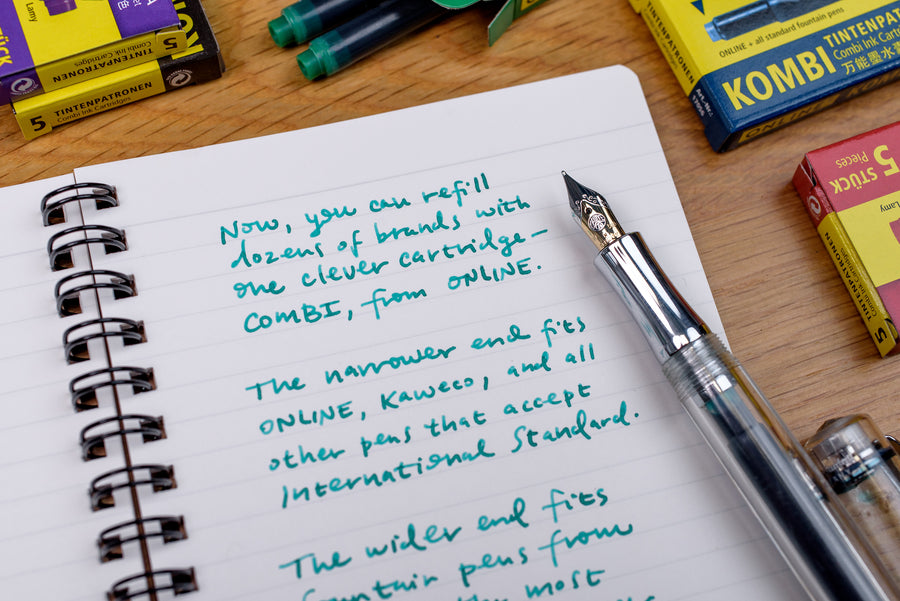 Now, you can refill
dozens of brands with
one clever cartridge-
COMBI, from ONLINE.
The narrower end fits
ONLINE, Kaweco, and all
other pens that accept
International Standard.
The wider end fits
fountain pens from
most
Lamy
TINTENPATRONEN
Combi Ink Cartridges
5
TINTENPATRONEN
Combi Ink Cartridges
5
ONLINE + all standard fountain pens
KOMBI
TINTENPATRONEN
Combi Ink Cartridges
万能墨水
5
STÜCK
Pieces
Lamy
TINTENPATRONEN
Combi Ink Cartridges
5